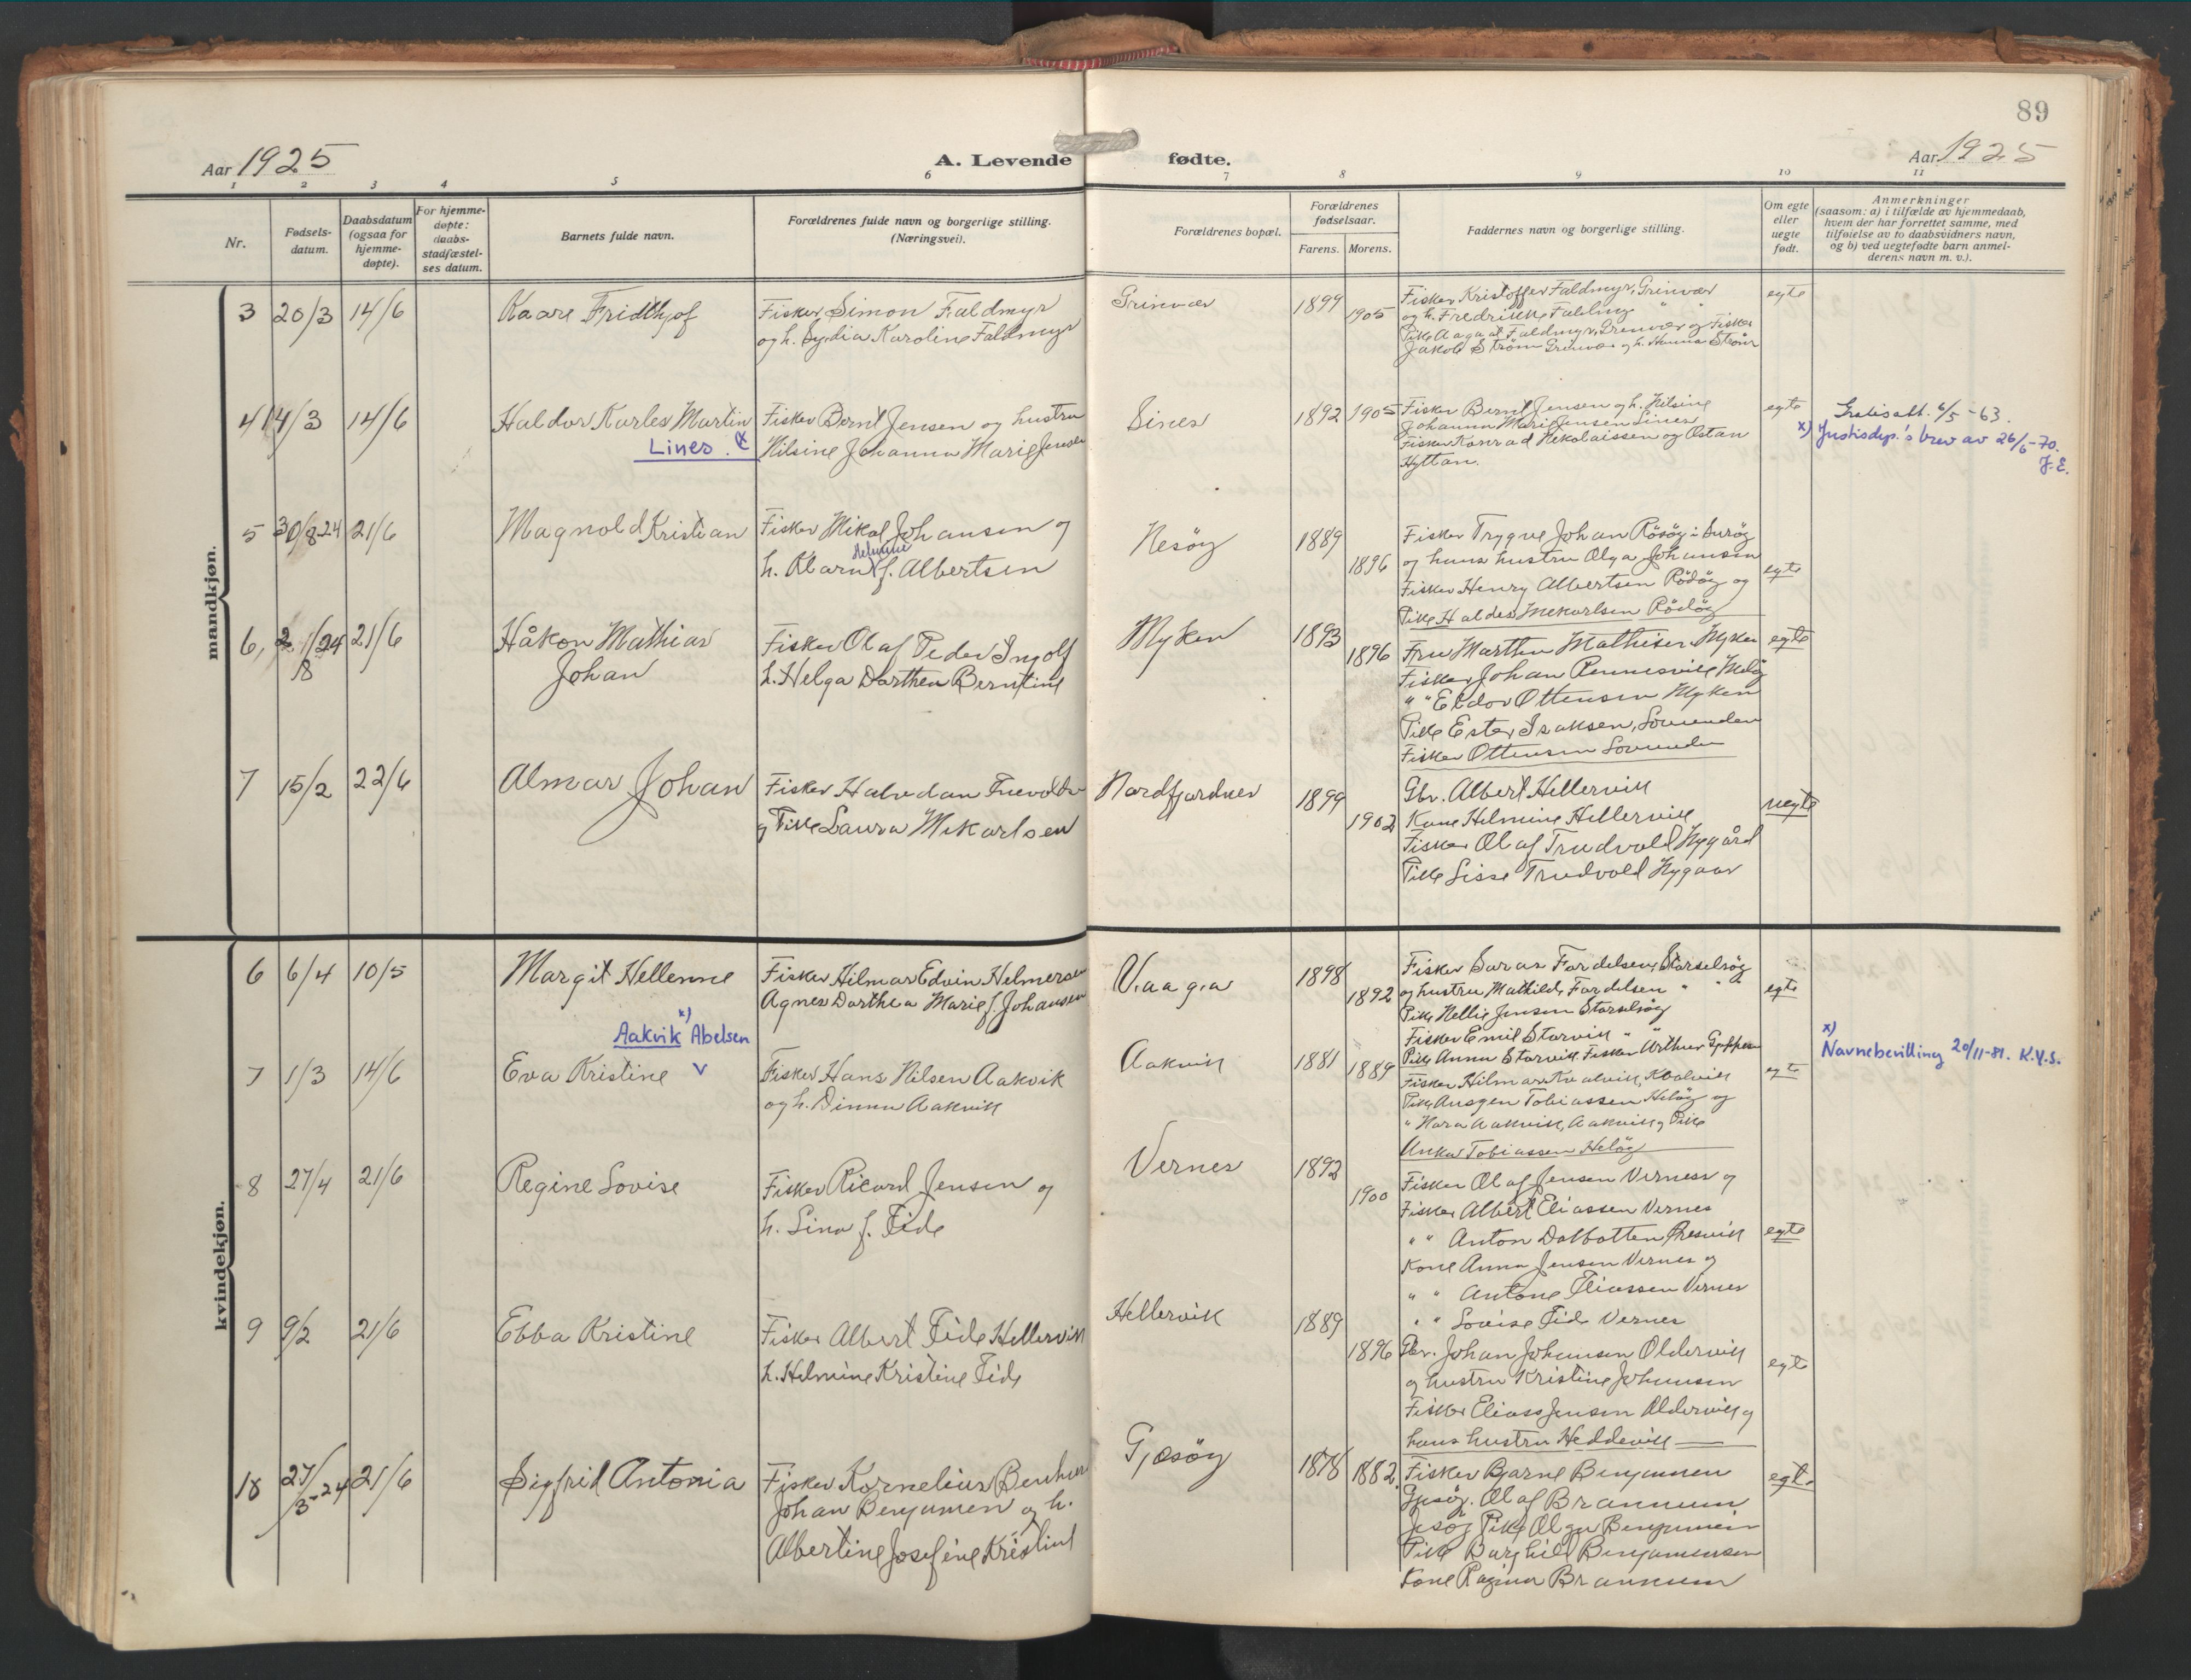 89
Aar 1925
A. Levende fødte.
Aar 1925
1 2 3 4 5 6 7 8 9 10 11
Nr.
Fødsels-
datum.
Daabsdatum
(ogsaa for
hjemme-
døpte).
For hjemme-
døpte:
daabs-
stadfæstel-
ses datum.
Barnets fulde navn.
Forældrenes fulde navn og borgerlige stilling.
(Næringsvei).
Forældrenes bopæl.
Forældrenes
fødselsaar.
Farens. Morens.
Faddernes navn og borgerlige stilling.
Om egte
eller
uegte
født.
Anmerkninger
(saasom: a) i tilfælde av hjemmedaab,
hvem der har forrettet samme, med
tilføielse av to daabsvidners navn,
og b) ved uegtefødte barn anmel-
derens navn m. v.).
mandkjøn.
3 20/3 14/6
Kaare Fridthjof
Fisker Simon Faldmyr
og h. Lydia Karoline Faldmyr
Grinvær
1899 1905
Fisker Kristoffer Faldmyr, Grinvær
og h. Fredrikke
Pike Aagaat Faldmyr, Grenvær og Fisker
Jakob Strøm Grinvær og h. Strøm
egte
4 14/3 14/6
Haldor Karles Martin
Lines. x
Fisker Bernt Jensen og hustru
Nilsine Johanna Marie Jensen
Lines
1892 1905
Fisker Bernt Jensen og h. Nilsine
Johanna Marie Jensen Lines
Fisker Konrad Nikolaissen og Østan
Hyttan.
egte
Gratisatt. 6/5-63.
x) Justisdep.'s brev av 26/6-70.
J.E.
5 30/8-24 21/6
Magnold Kristian
Fisker Mikal Johansen og
h. Klarn f. Albertsen
Nesøy
1889 1896
Fisker Trygve Johan Rösöy i Lurøy
og hans hustru Olga Johansen
Fisker Henry Albertsen Rödöy og
Pike Haldes Mekarlsen Rödöy
egte
6, 2 1/24 8 21/6
Håkon Mathias
Johan
Fisker Olaf Peder Ingolf
h. Helga Dorthen Berntine
Myken
1893 1896
Fru Marthn Mathisen, Myken
Fisker Johan Rennesvik Meløy
" " Eldor Ottensen Myken
Pike Ester Isaksen, Lovunden
Fisker Ottensen Lovunden
egte
7 15/2 22/6
Almar Johan
Fisker Halvdan
og Pike Laura Mikarlsen
Nordfjordnes
1899 1902
Gbr. Albert Hellervik
Kone Helmine Hellervik
Fisker Olaf Trudvold Nygård
Pike Lisse Trudvold Nygaar
uegte
kvindekjøn.
6 6/4 10/5
Margit Hellenne
Fisker Hilmar Edvin Helmersen
Agnes Dorthea Marie f. Johansen
Vaaga
1898 1892
Fisker Lars Fordelsen, Storselsøy
og hustru Mathilde Fordelsen " "
Pike Nellie Jensen Storselsøy
Fisker Emil Storvik " "
Pike Anna Storvik Fisker Arthur
egte
x)
Aakvik Abelsen
7 1/3 14/6
Eva Kristine v
Fisker Hans Nilsen Aakvik
og h. Dinna Aakvik
Aakvik
1881 1889
Fisker Hilmar Kvalvik, Kvalvik
Pike Ansgen Tobiassen Heløy og
" Nora Aakvik, Aakvik og Pike
Anker Tobiassen Heløy
egte
x)
Navnebevilling 20/11-81. K.Y.S.
8 27/4 21/6
Regine Lovise
Fisker Ricard Jensen og
h. Lina f. Eide
Vernes
1892 1900
Fisker Olaf Jensen Verness og
Fisker Albert Eliassen Vernes
" " Anton Dalbotten Presvik
Kone Anna Jensen Vernes og
" " Antone Eliassen Vernes
" " Lovise Eide Vernes
egte
9 9/2 21/6
Ebba Kristine
Fisker Albert Eide Hellervik
h. Helmine Kristine Eide
Hellervik
1889 1896
Gbr. Johan Johansen Oldervik
og hustru Kristine Johansen
Fisker Elias Jensen Aldervik og
hans hustru Heddevik
egte
10 27/3-24 21/6
Sigfrid Antonia
Fisker Kornelius Benhur
Johan Benjamen og h.
Albertine Josefine Kristine
Gjesøy
1878 1882
Fisker Bjarne Benjamen
Gjesøy. Olaf Brannum
Jesøy Pike Olga Benjamin
Pike Borghild Benjamensen
Kone Ragna Brannum
egte